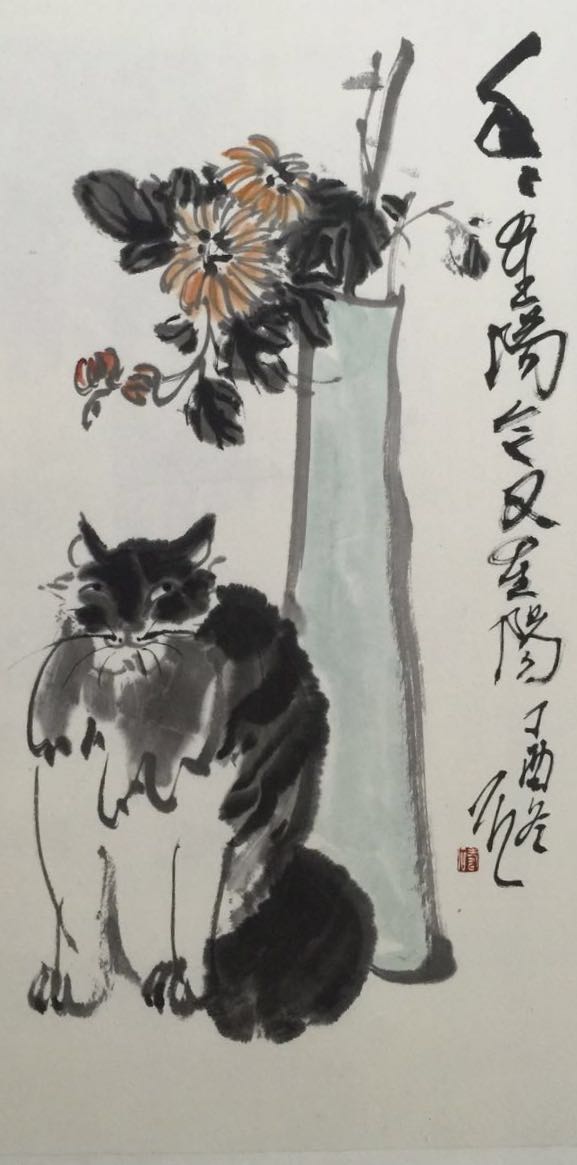 年〻重陽今又重陽
丁酉冬